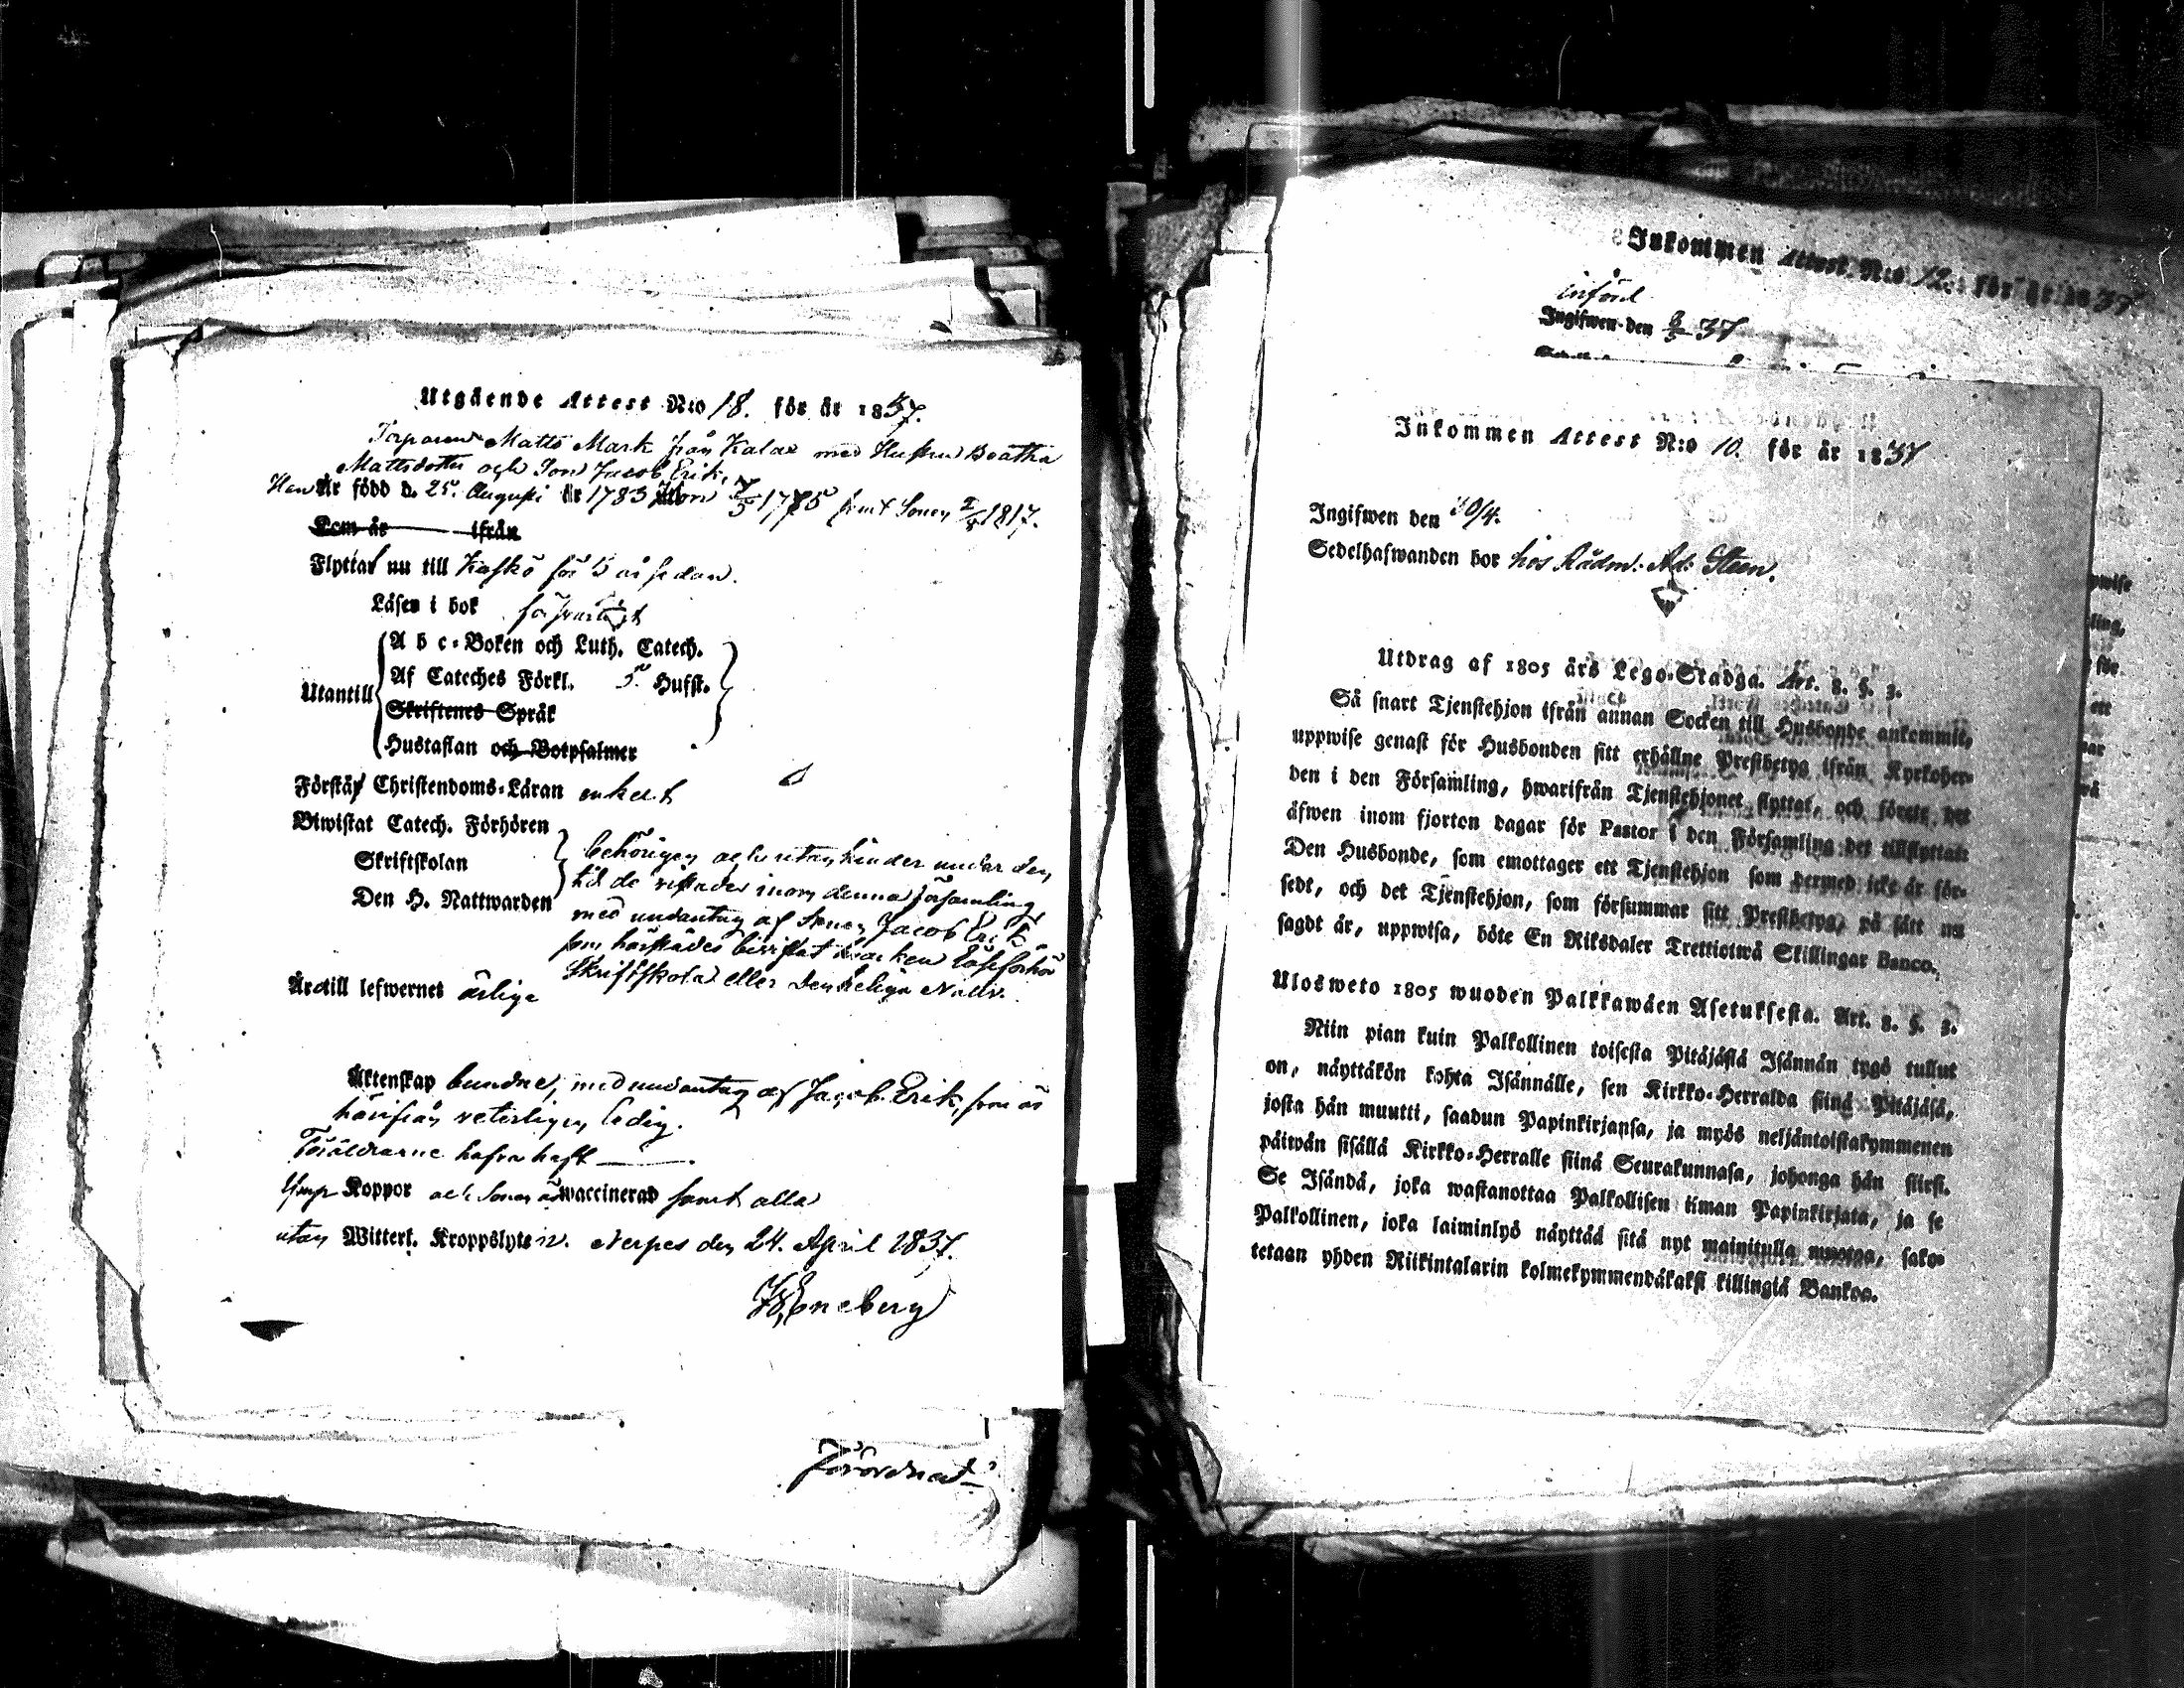 Utgående Attest N:o 18. för år 1837.
Torparen Matts Mark från Kalax med Hustru Beatha
Mattsdotter och Son Jacob Erik,
Han Är född d. 25. Augusti år 1783 1775 samt Sonen 1817.
Kom år ifrån
Flyttat nu till Kaskö för 5 år sedan.
Läsen i bok försvarligt
Utantill
A b c-Boken och Luth. Catech.
Af Cateches Förkl. 5 Hufst.
Skriftenes Språk
Hustaflan och Botpsalmer
Förstå Christendoms-Läran enkelt
Biwistat Catech. Förhören
Skriftskolan
Den H. Nattwarden
behörigen och utan hinder under den
tid de vistades inom denna församling
med undantag af Sonen Jacob Erik
som härstädes bivistat hvarken Läseförhör
Skriftskola eller Den heliga Nattv.
Är till lefwernet ärlige
Äktenskap bundne, med undantag af Jacob Erik, som är
härifrån veterligen ledig.
Föräldrarne hafva haft
Koppor och Sonen är waccinerad samt alla
utan Witterl. Kroppslyten. Nerpes den 24. April 1837.
Eneberg
Inkommen Attest. N:o 12. för år 1837.
införd
Ingifwen den 37
Inkommen Attest N:o 10. för år 1837
Ingifwen den 30/4.
Sedelhafwanden bor hos Rådm: Ad: Steen.
Utdrag af 1805 års Lego-Stadga. Art. 8. §. 3.
Så snart Tjenstehjon ifrån annan Socken till Husbonde ankommit,
uppwise genast för Husbonden sitt erhållne Prestbetyg ifrån Kyrkoher-
den i den Församling, hwarifrån Tjenstehjonet flyttat, och förete det
äfwen inom fjorton dagar för Pastor i den Församling det tillflyttat:
Den Husbonde, som emottager ett Tjenstehjon som dermed icke är för-
sedt, och det Tjenstehjon, som försummar sitt Prestbetyg, på sätt nu
sagdt är, uppwisa, böte En Riksdaler Trettiotwå Skillingar Banco.
Ulosweto 1805 wuoden Palkkawäen Asetuksesta. Art. 8. §. 3.
Niin pian kuin Palkollinen toisesta Pitäjästä Isännän tygö tullut
on, näyttäkön kohta Isännälle, sen Kirkko-Herralda siinä Pitäjäsä,
josta hän muutti, saadun Papinkirjansa, ja myös neljäntoistakymmenen
päiwän sisällä Kirkko-Herralle siinä Seurakunnasa, johonga hän siirsi.
Se Isändä, joka wastanottaa Palkollisen ilman Papinkirjata, ja se
Palkollinen, joka laiminlyö näyttää sitä nyt mainitulla muotoa, sako-
tetaan yhden Riikintalarin kolmekymmendäkaksi killingiä Bankoa.